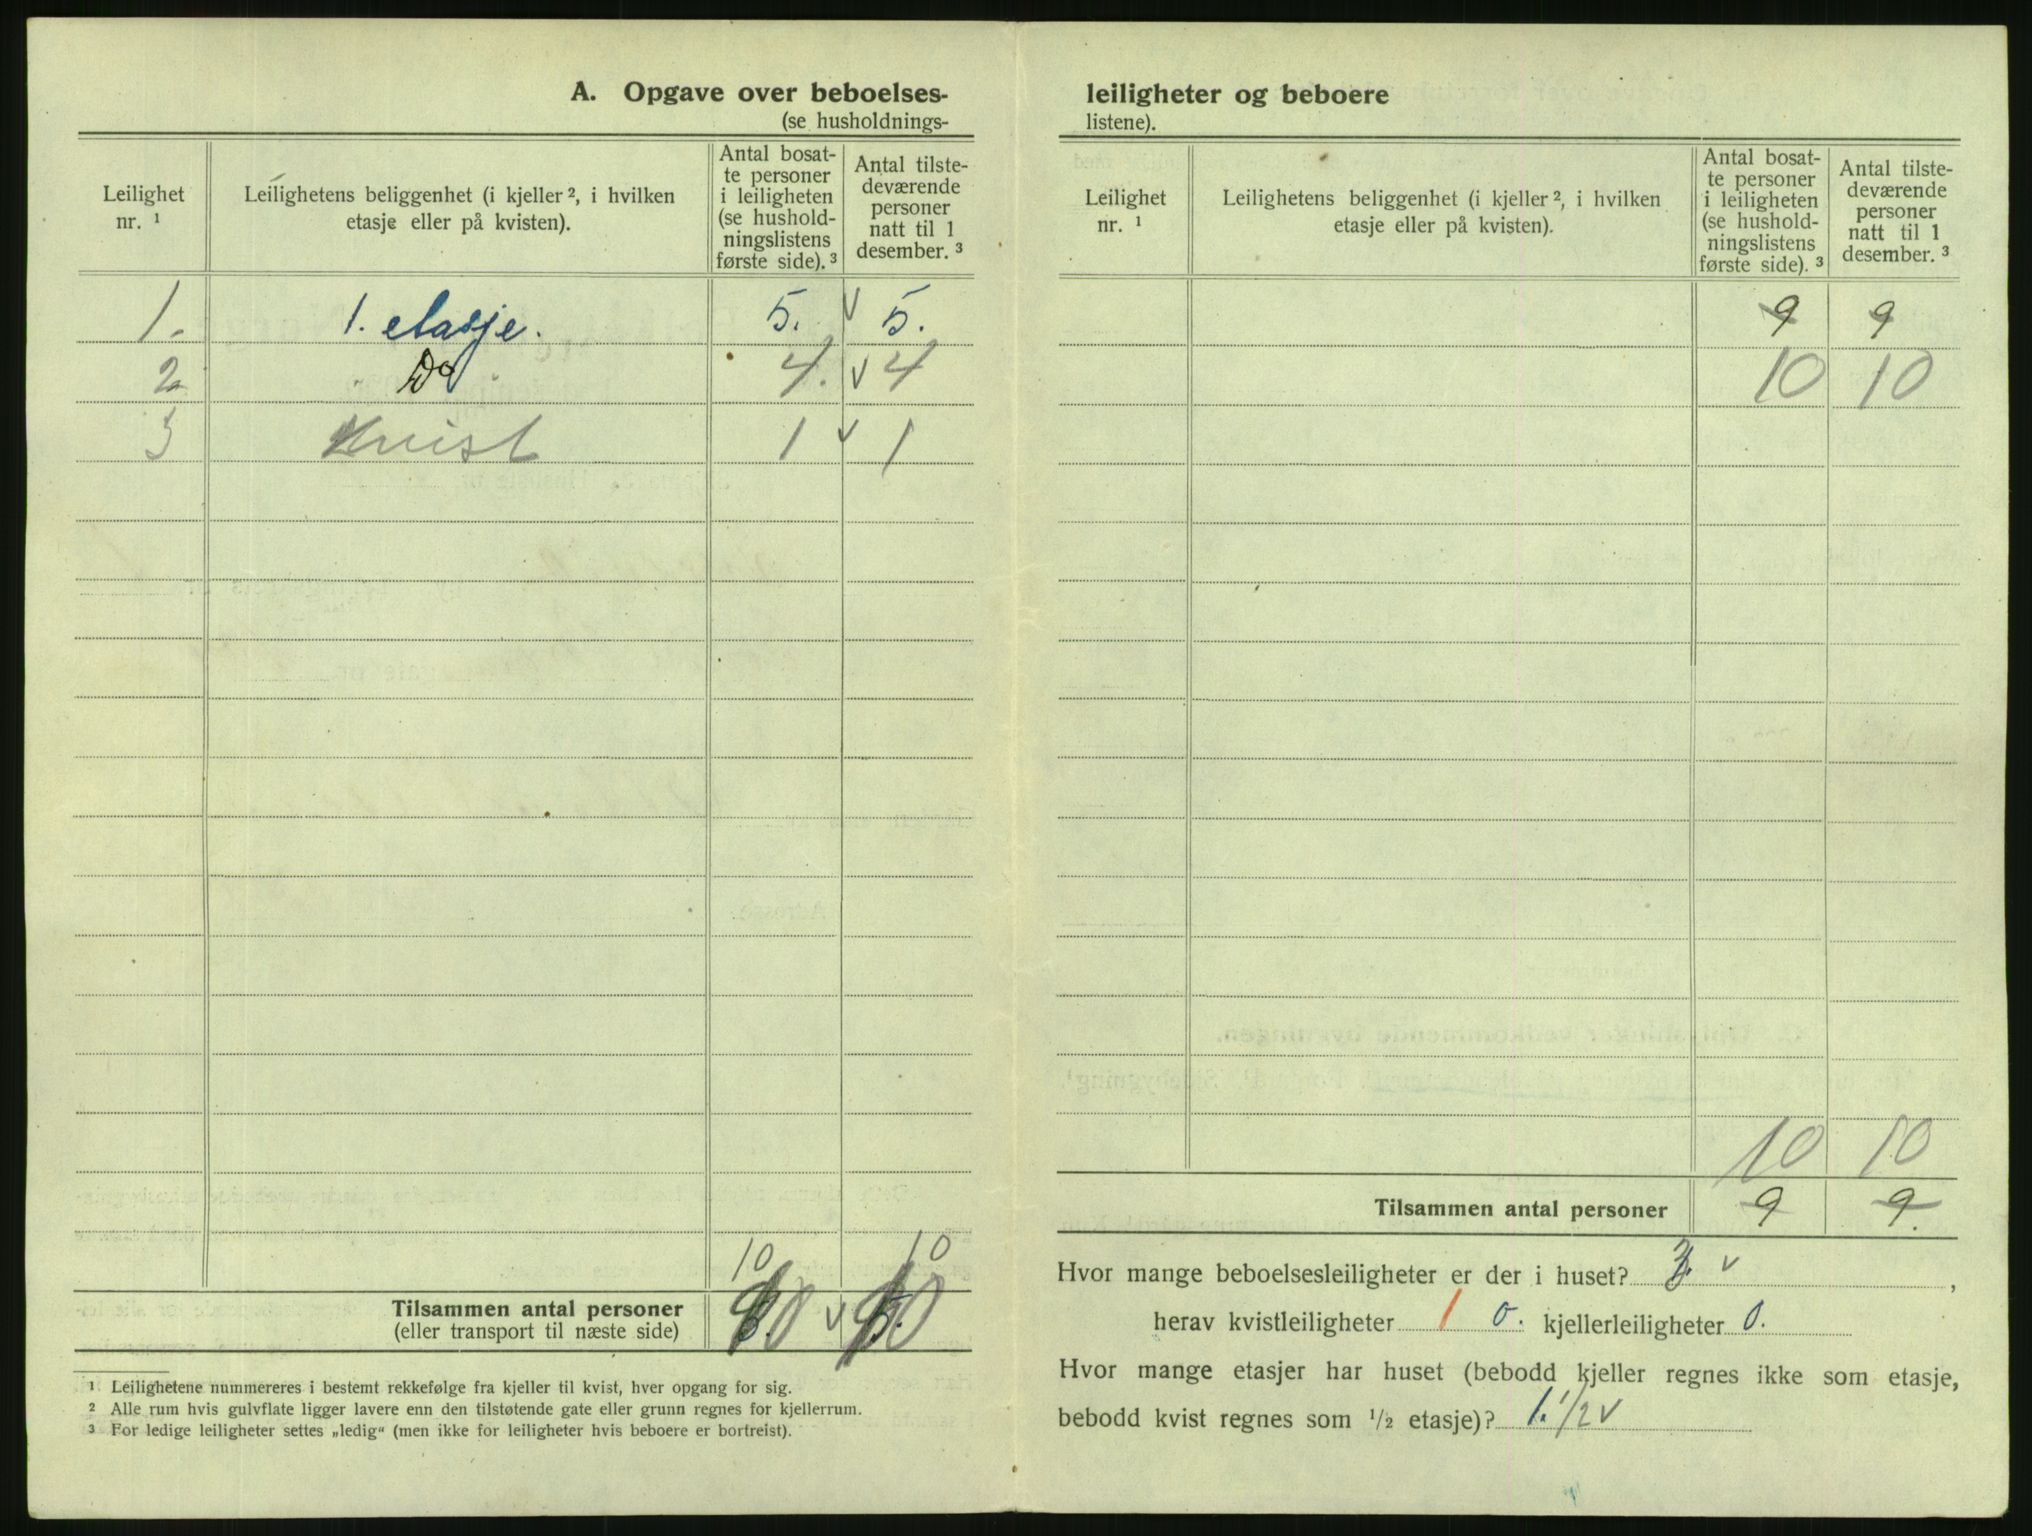 A. Opgave over beboelses-
(se husholdnings-
Leilighet nr. ¹
Leilighetens beliggenhet (i kjeller ², i hvilken etasje eller på kvisten).
Antal bosat-
te personer
i leiligheten
(se hushold-
ningslistens
første side). ³
Antal tilste-
deværende
personer
natt til 1
desember. ³
1. 1. etasje. 5. v 5.
2 " Do " 4. v 4
3 Kvist 1 v 1
10 10
Tilsammen antal personer
(eller transport til næste side) v
¹ Leilighetene nummereres i bestemt rekkefølge fra kjeller til kvist, hver opgang for sig.
² Alle rum hvis gulvflate ligger lavere enn den tilstøtende gate eller grunn regnes for kjellerrum.
³ For ledige leiligheter settes „ledig“ (men ikke for leiligheter hvis beboere er bortreist).
leiligheter og beboere
listene).
Leilighet nr. ¹
Leilighetens beliggenhet (i kjeller ², i hvilken etasje eller på kvisten).
Antal bosat-
te personer
i leiligheten
(se hushold-
ningslistens
første side). ³
Antal tilste-
deværende
personer
natt til 1
desember. ³
9 9
10 10
10 10
Tilsammen antal personer 9 9.
Hvor mange beboelsesleiligheter er der i huset? 3. v ,
herav kvistleiligheter 1 0. kjellerleiligheter 0.
Hvor mange etasjer har huset (bebodd kjeller regnes ikke som etasje,
bebodd kvist regnes som ½ etasje)? 1. 1/2 v